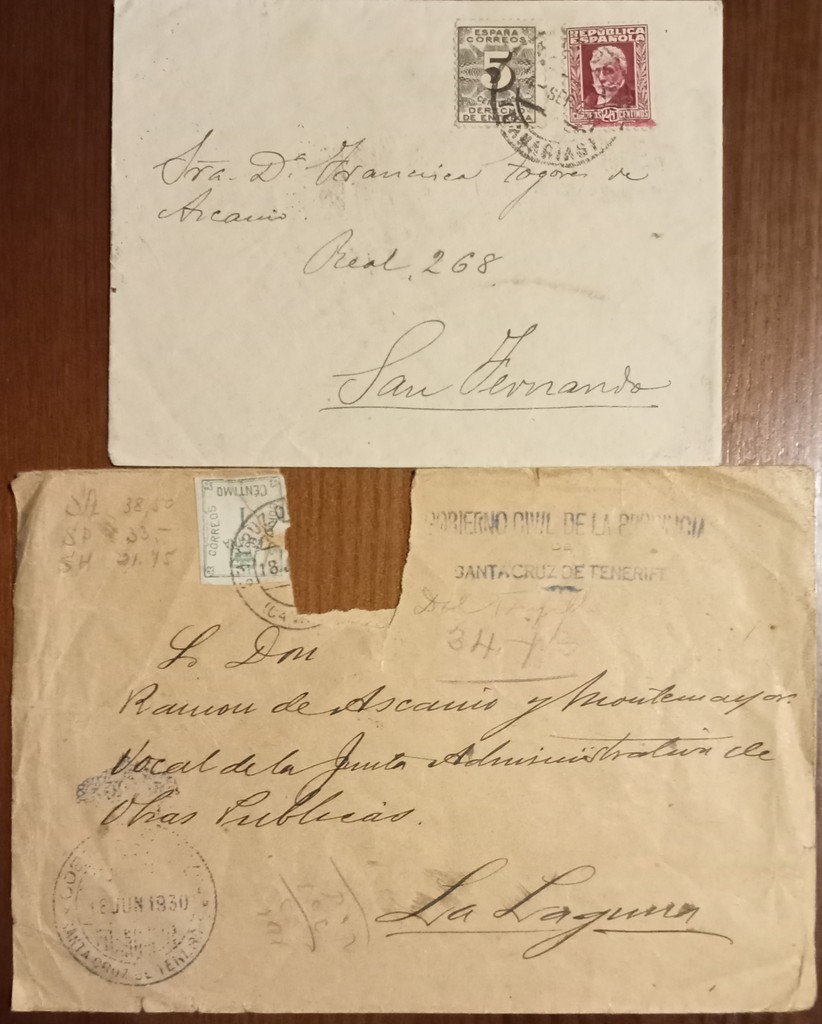 ESPAÑA
CORREOS
5
DERECHO
DE ENTREGA
REPÚBLICA
ESPAÑOLA
CORREOS 25 CENTIMOS
SEP
(CANARIAS)
Sra. Dª Francisca Togores de
Ascanio.
Real, 268
San Fernando
38,50
33,-
21.45
CORREOS
1
CENTIMO
18
GOBIERNO CIVIL DE LA PROVINCIA
DE
SANTA CRUZ DE TENERIFE
34-75
Sr Don
Ramon de Ascanio y Montemayor.
Vocal de la Junta Administrativa de
Obras Publicas.
La Laguna
18 JUN 1930
SANTA CRUZ DE TENERIFE